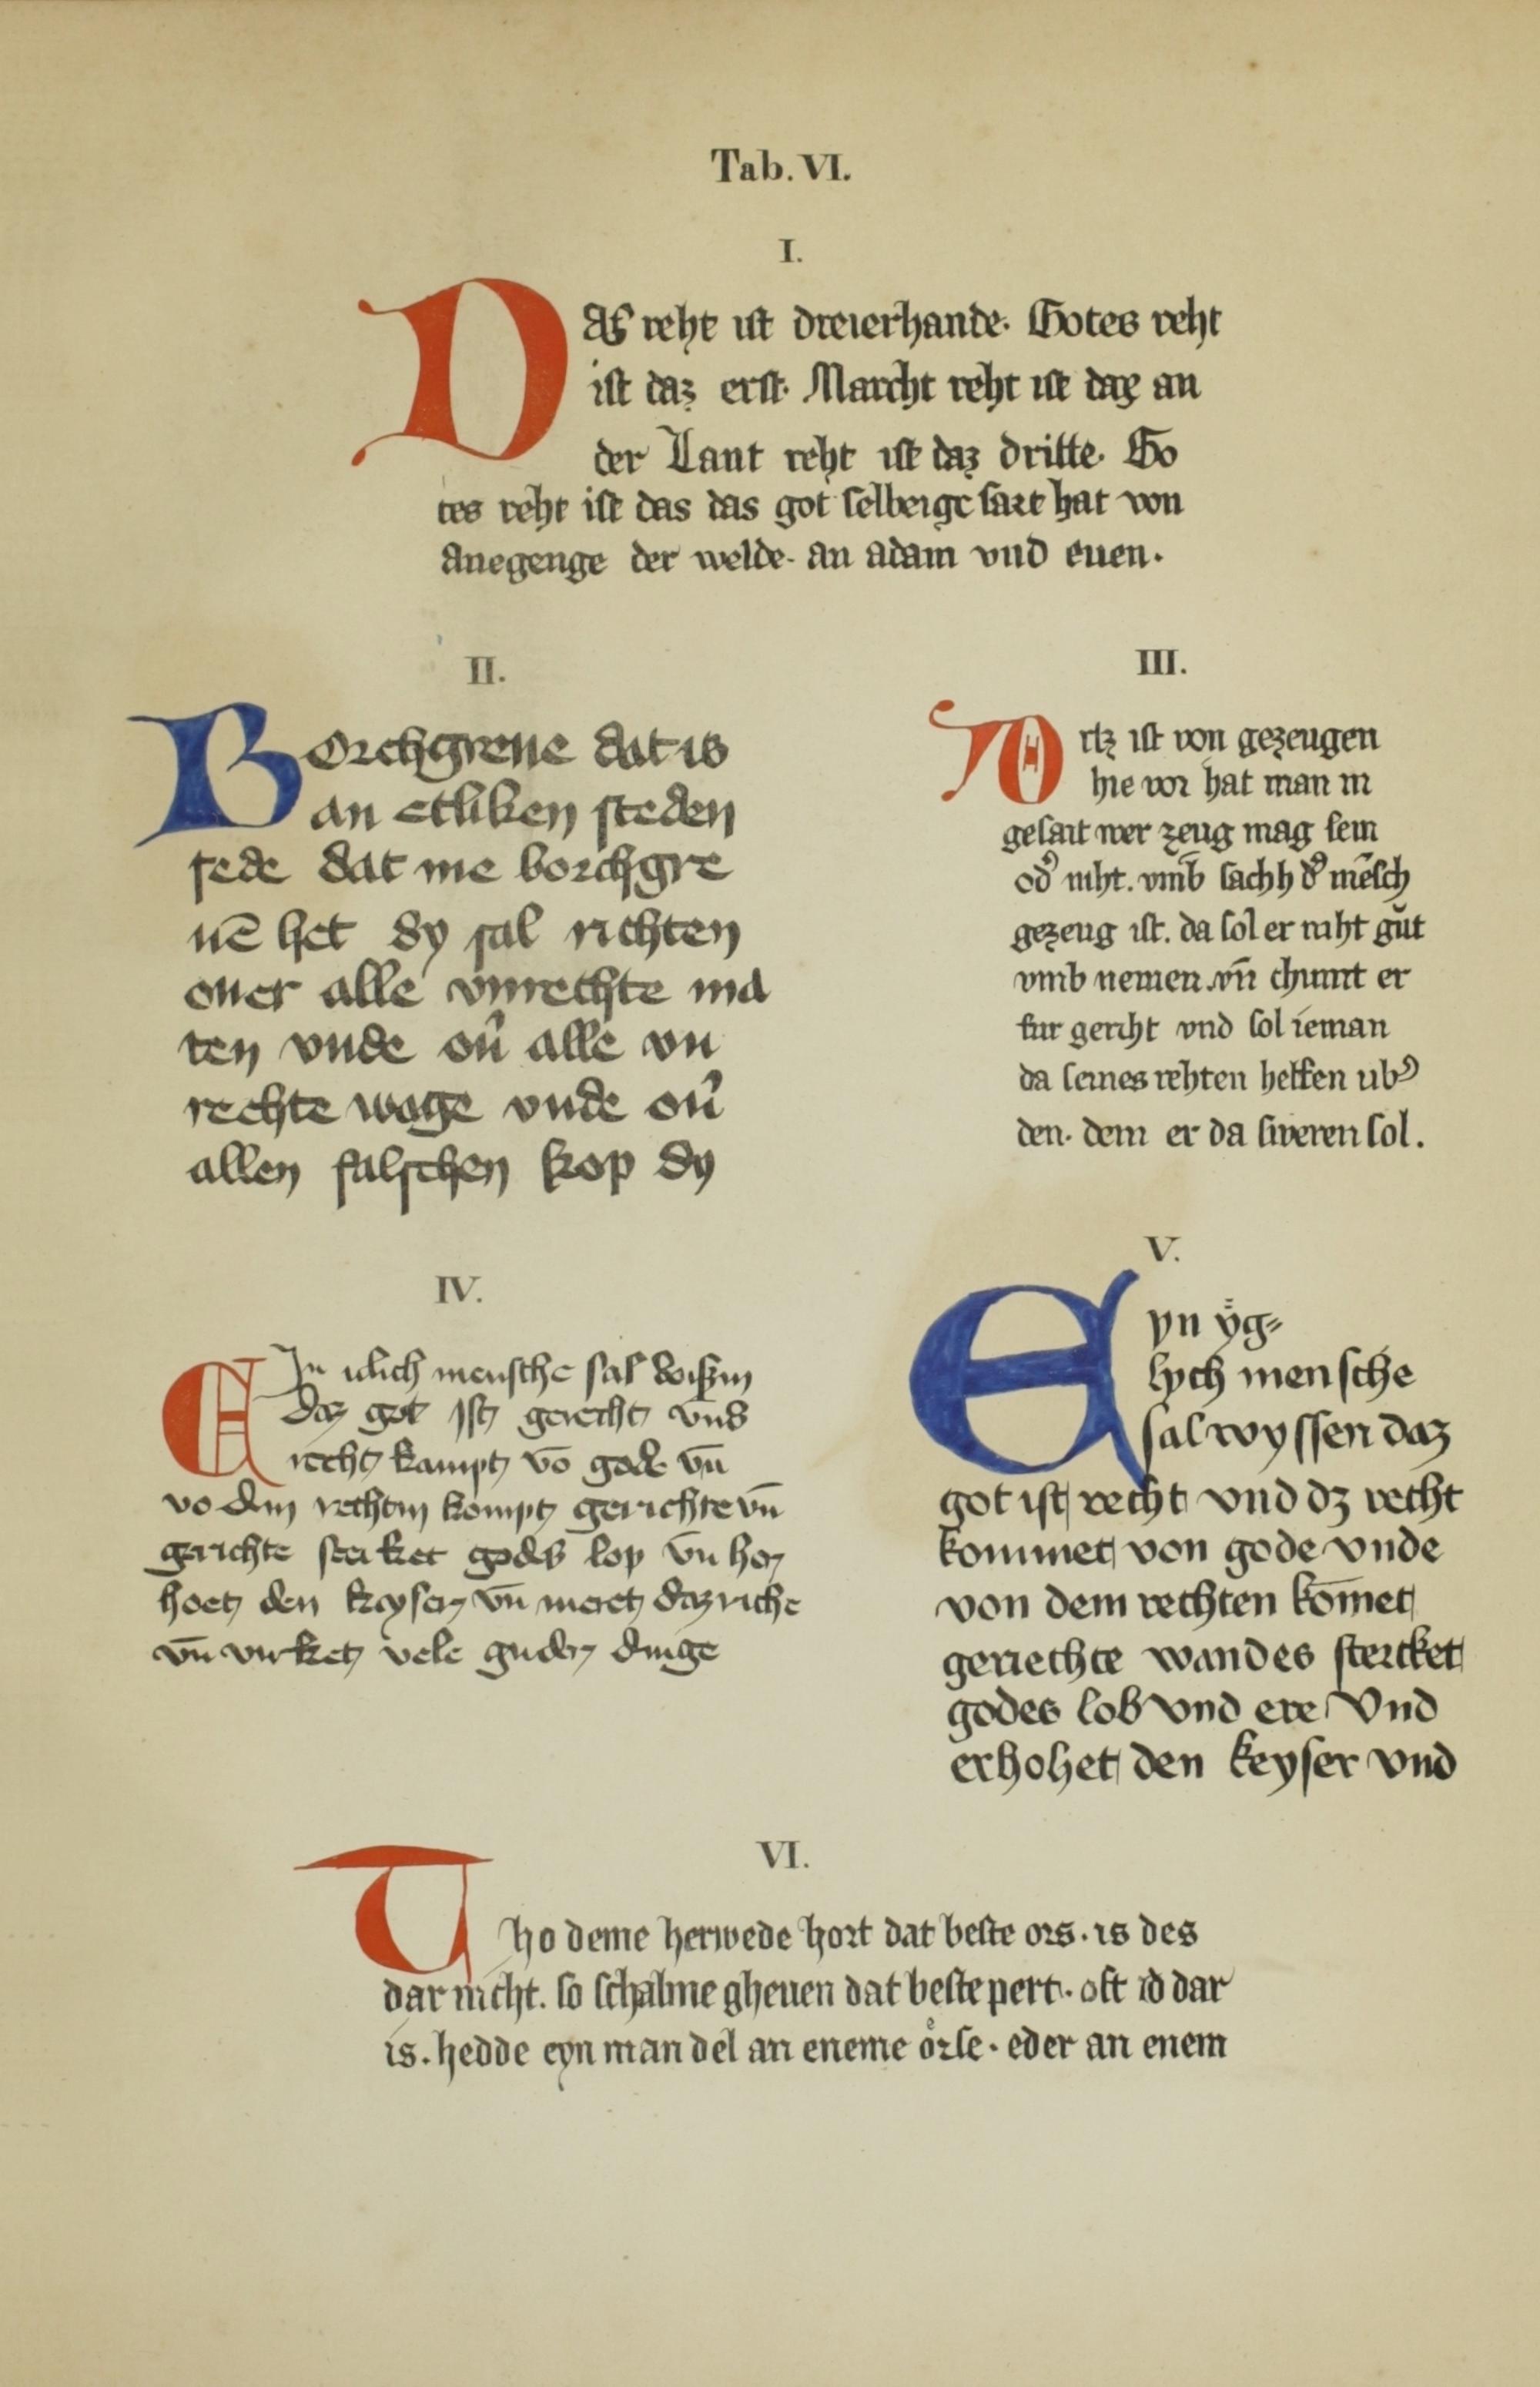 Tab. VI.
I.
Das reht ist dreierhande. Gotes reht
ist daz erst. Marcht reht ist daz an
der Lant reht ist daz dritte. Go
tes reht ist das das got selbeige sazt hat von
Anegenge der welde. an adam vnd euen.
II.
BOrchgreue dat is
an etliken steden
sede dat me borchgre
uē het dy sal richten
ouer alle vnrechte ma
ten vnde ou̓ alle vn
rechte wage vnde ou̓
allen falschen kop dy
III.
Wrtz ist von gezeugen
hie vor hat man in
gesait wer zeug mag sein
od̓ niht. vm̄b sachh d̓ mēsch
gezeug ist. da sol er niht gůt
vmb nemen. vn̄ chumt er
fur geriht vnd sol ieman
da seines rehten helfen ub̓
den. dem er da sweren sol.
IV.
EIn idich mensche sal wißin
daz got ist gerecht vn̄d
recht kampt vō gode vn̄
vo den rechtin kompt gerichte vn̄
gerichte sterket gods lop vn̄ her
hoet den keyser vn̄ meret daz riche
vn̄ virket vele guder dinge
V.
Eyn ÿg⸗
lych mensche
sal wyssen daz
got ist recht vnd dz recht
kommet von gode vnde
von dem rechten kōmet
geriechte wandes stercket
godes lob vnd ere Vnd
erhohet den keyser vnd
VI.
Tho deme herwede hort dat beste ors. is des
dar nicht. so schalme gheuen dat beste pert. oft id dar
is. hedde eyn man del an eneme o̊rse. eder an enem